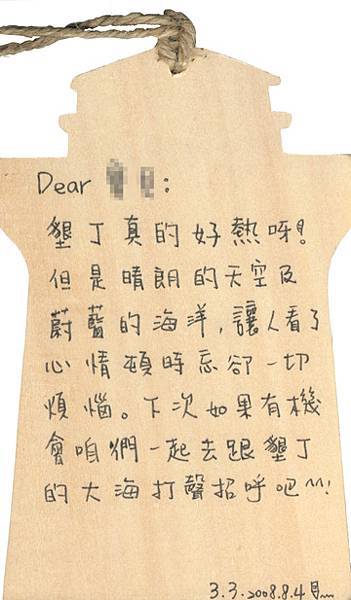 Dear :
墾丁真的好熱呀!
但是晴朗的天空及
蔚藍的海洋,讓人看了
心情頓時忘卻一切
煩惱。下次如果有機
會咱們一起去跟墾丁
的大海打聲招呼吧^^!
3.3.2008.8.4